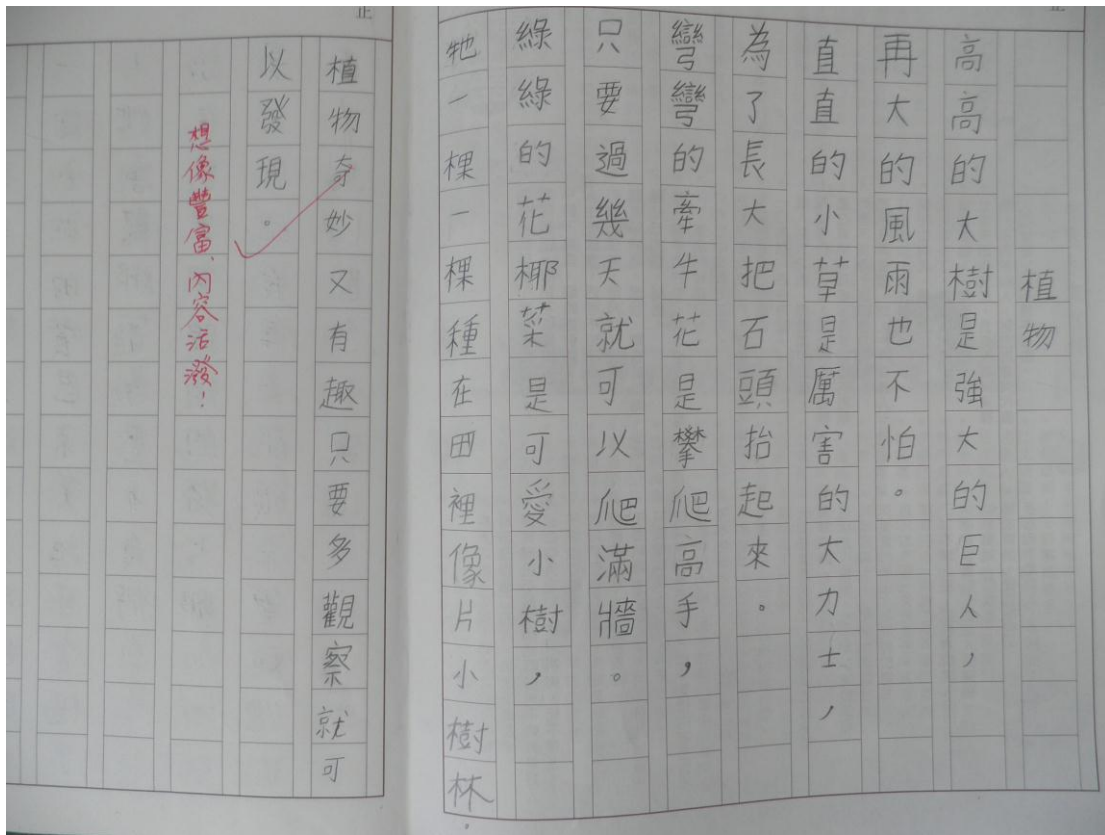 植物
高高的大樹是強大的巨人，
再大的風雨也不怕。
直直的小草是厲害的大力士，
為了長大把石頭抬起來。
彎彎的牽牛花是攀爬高手，
只要過幾天就可以爬滿牆。
綠綠的花椰菜是可愛小樹，
牠一棵一棵種在田裡像片小樹林，
植物奇妙又有趣只要多觀察就可
以發現。
想像豐富、內容活潑！